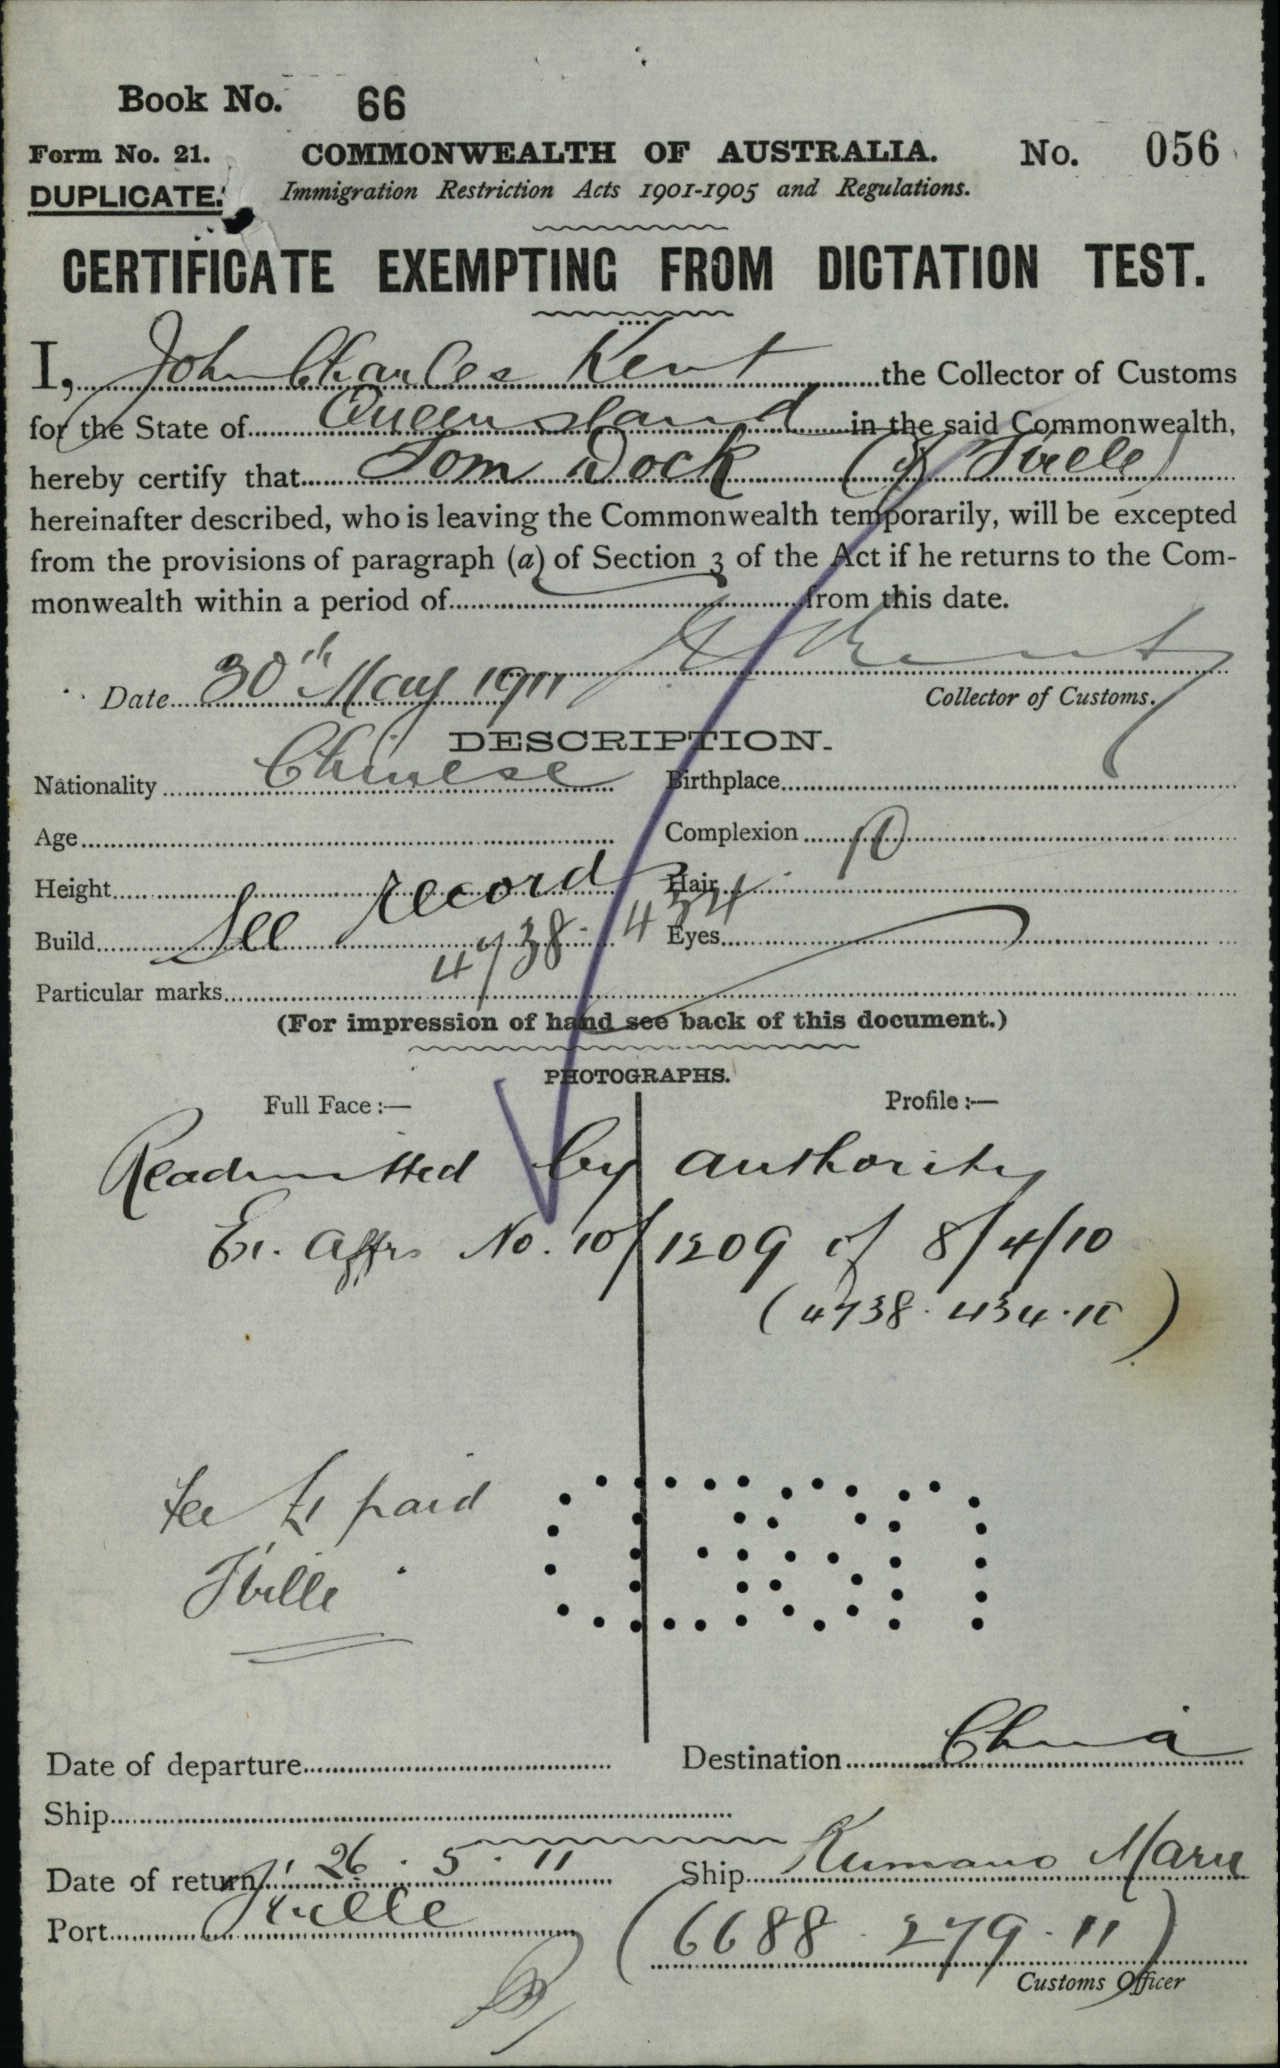 Book No. 66
Form No. 21. COMMONWEALTH OF AUSTRALIA. No. 056
DUPLICATE. Immigration Restriction Acts 1901-1905 and Regulations.
CERTIFICATE EXEMPTING FROM DICTATION TEST.
I, John Charles Kent the Collector of Customs
for the State of Queensland in the said Commonwealth,
hereby certify that Tom Dock (of T'ville)
hereinafter described, who is leaving the Commonwealth temporarily, will be excepted
from the provisions of paragraph (a) of Section 3 of the Act if he returns to the Com-
monwealth within a period of from this date.
Date 30th May 1911 Kent
Collector of Customs.
DESCRIPTION.
Nationality Chinese Birthplace
Age Complexion
Height Hair
See record 4738. 434 10
Build Eyes
Particular marks
(For impression of hand see back of this document.)
PHOTOGRAPHS.
Full Face:— Profile:—
Readmitted by authority
Ex. Affrs No. 10/1209 of 8/4/10
(4738. 434.10)
CEBA
fee £1 paid
T'ville
Date of departure Destination China
Ship
Date of return 26.5.11 Ship Kumano Maru
Port T'ville (6688.279.11)
Customs Officer